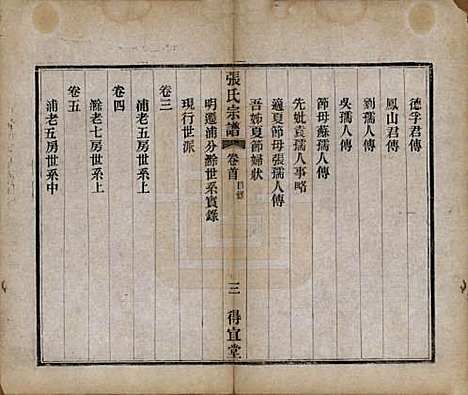 德孚君傳
鳳山君傳
劉孺人傳
吳孺人傳
節母蘇孺人傳
先妣袁孺人事略
適夏節母張孺人傳
吾姊夏節婦狀
張氏宗譜
卷首
目錄
三
得宜堂
明遷浦分滁世系實錄
現行世派
卷三
浦老五房世系上
卷四
滁老七房世系上
卷五
浦老五房世系中